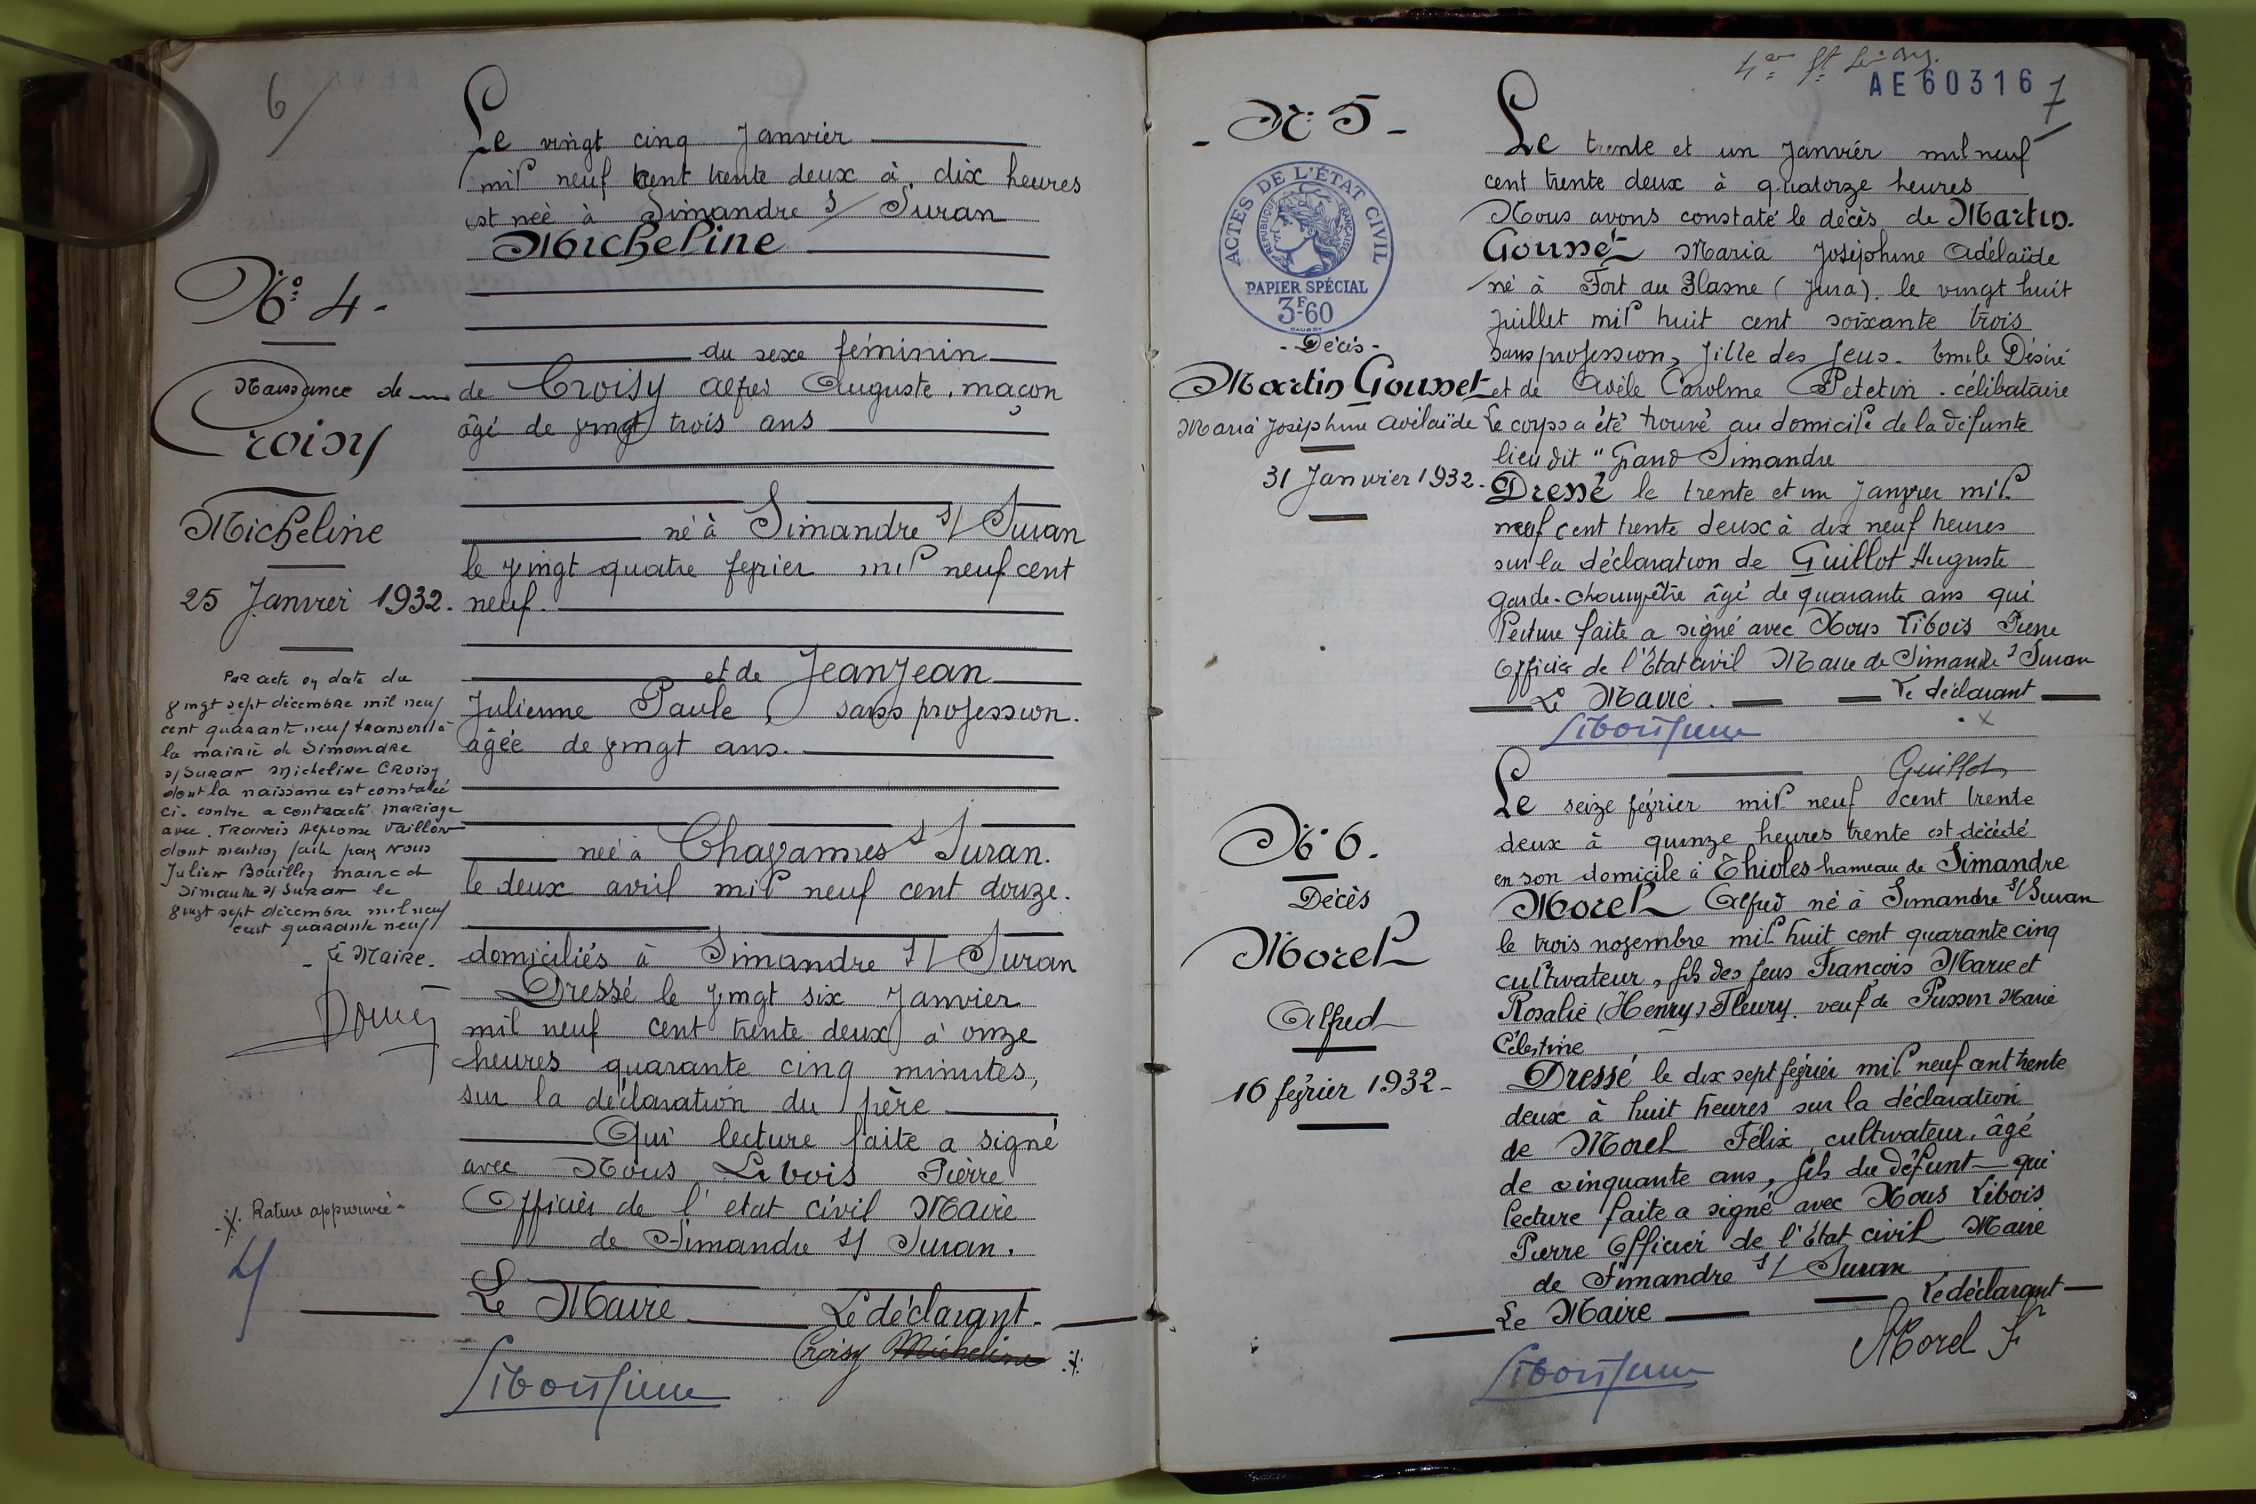 6
Le vingt cinq Janvier
mil neuf cent trente deux à dix heures
est née à Simandre s/ Suran
Micheline
N° 4 -
du sexe féminin
Naissance de
Croisy
Micheline
25 Janvier 1932.
de Croisy Auguste, maçon
âgé de vingt trois ans
né à Simandre s/ Suran
le vingt quatre fevrier mil neuf cent
neuf.
et de JeanJean
Julienne Paule, sans profession.
âgée de vingt ans.
née à Chavannes s Suran.
le deux avril mil neuf cent douze.
domiciliés à Simandre s/ Suran
Dressé le vingt six Janvier
mil neuf cent trente deux à onze
heures quarante cinq minutes,
sur la déclaration du père
Qui lecture faite a signé
avec Nous Libois Pierre
Officier de l'etat civil Maire
de Simandre s/ Suran.
Le Maire Le déclarant.
Croisy Micheline .x.
Par acte en date du
vingt sept décembre mil neuf
cent quarante neuf transcrit à
la mairie de Simandre
s/ Suran Micheline CROISY
dont la naissance est constatée
ci-contre a contracté mariage
avec Francis Alphonse Vaillon
dont mention faite par Nous
Julien Bouilley maire de
Simandre s/ Suran le
vingt sept décembre mil neuf
cent quarante neuf
Le Maire.
.x. Rature approuvée
4
AE 60316
7
- N° 5 -
ACTES DE L'ÉTAT CIVIL
RÉPUBLIQUE FRANÇAISE
PAPIER SPÉCIAL
3F60
- Décès -
Martin Gousset
Maria Joséphine Adélaïde
31 Janvier 1932.
Le trente et un Janvier mil neuf
cent trente deux à quatorze heures
Nous avons constaté le décès de Martin.
Gousset Maria Joséphine Adélaïde
né à Fort du Plasne (Jura). le vingt huit
Juillet mil huit cent soixante trois
sans profession, fille des feus. Emile Désiré
et de Adèle Caroline Petetin. célibataire
Le corps a été trouvé au domicile de la défunte
lieu dit "Grand Simandre
Dressé le trente et un Janvier mil
neuf cent trente deux à dix neuf heures
sur la déclaration de Guillot Auguste
garde-champêtre âgé de quarante ans qui
lecture faite a signé avec Nous Libois Pierre
Officier de l'État civil Maire de Simandre s/ Suran
Le Maire. Le déclarant
Guillot
N° 6.
Décès
Morel
Alfred
16 février 1932 -
Le seize février mil neuf cent trente
deux à quinze heures trente est décédé
en son domicile à Thioles hameau de Simandre
Morel Alfred né à Simandre s/ Suran
le trois novembre mil huit cent quarante cinq
cultivateur, fils des feus François Marie et
Rosalie (Henry) Fleury. veuf de Marie
Célestine
Dressé le dix sept février mil neuf cent trente
deux à huit heures sur la déclaration
de Morel Félix cultivateur, âgé
de cinquante ans, fils du défunt qui
lecture faite a signé avec Nous Libois
Pierre Officier de l'État civil Maire
de Simandre s/ Suran
Le Maire Le déclarant
Morel F